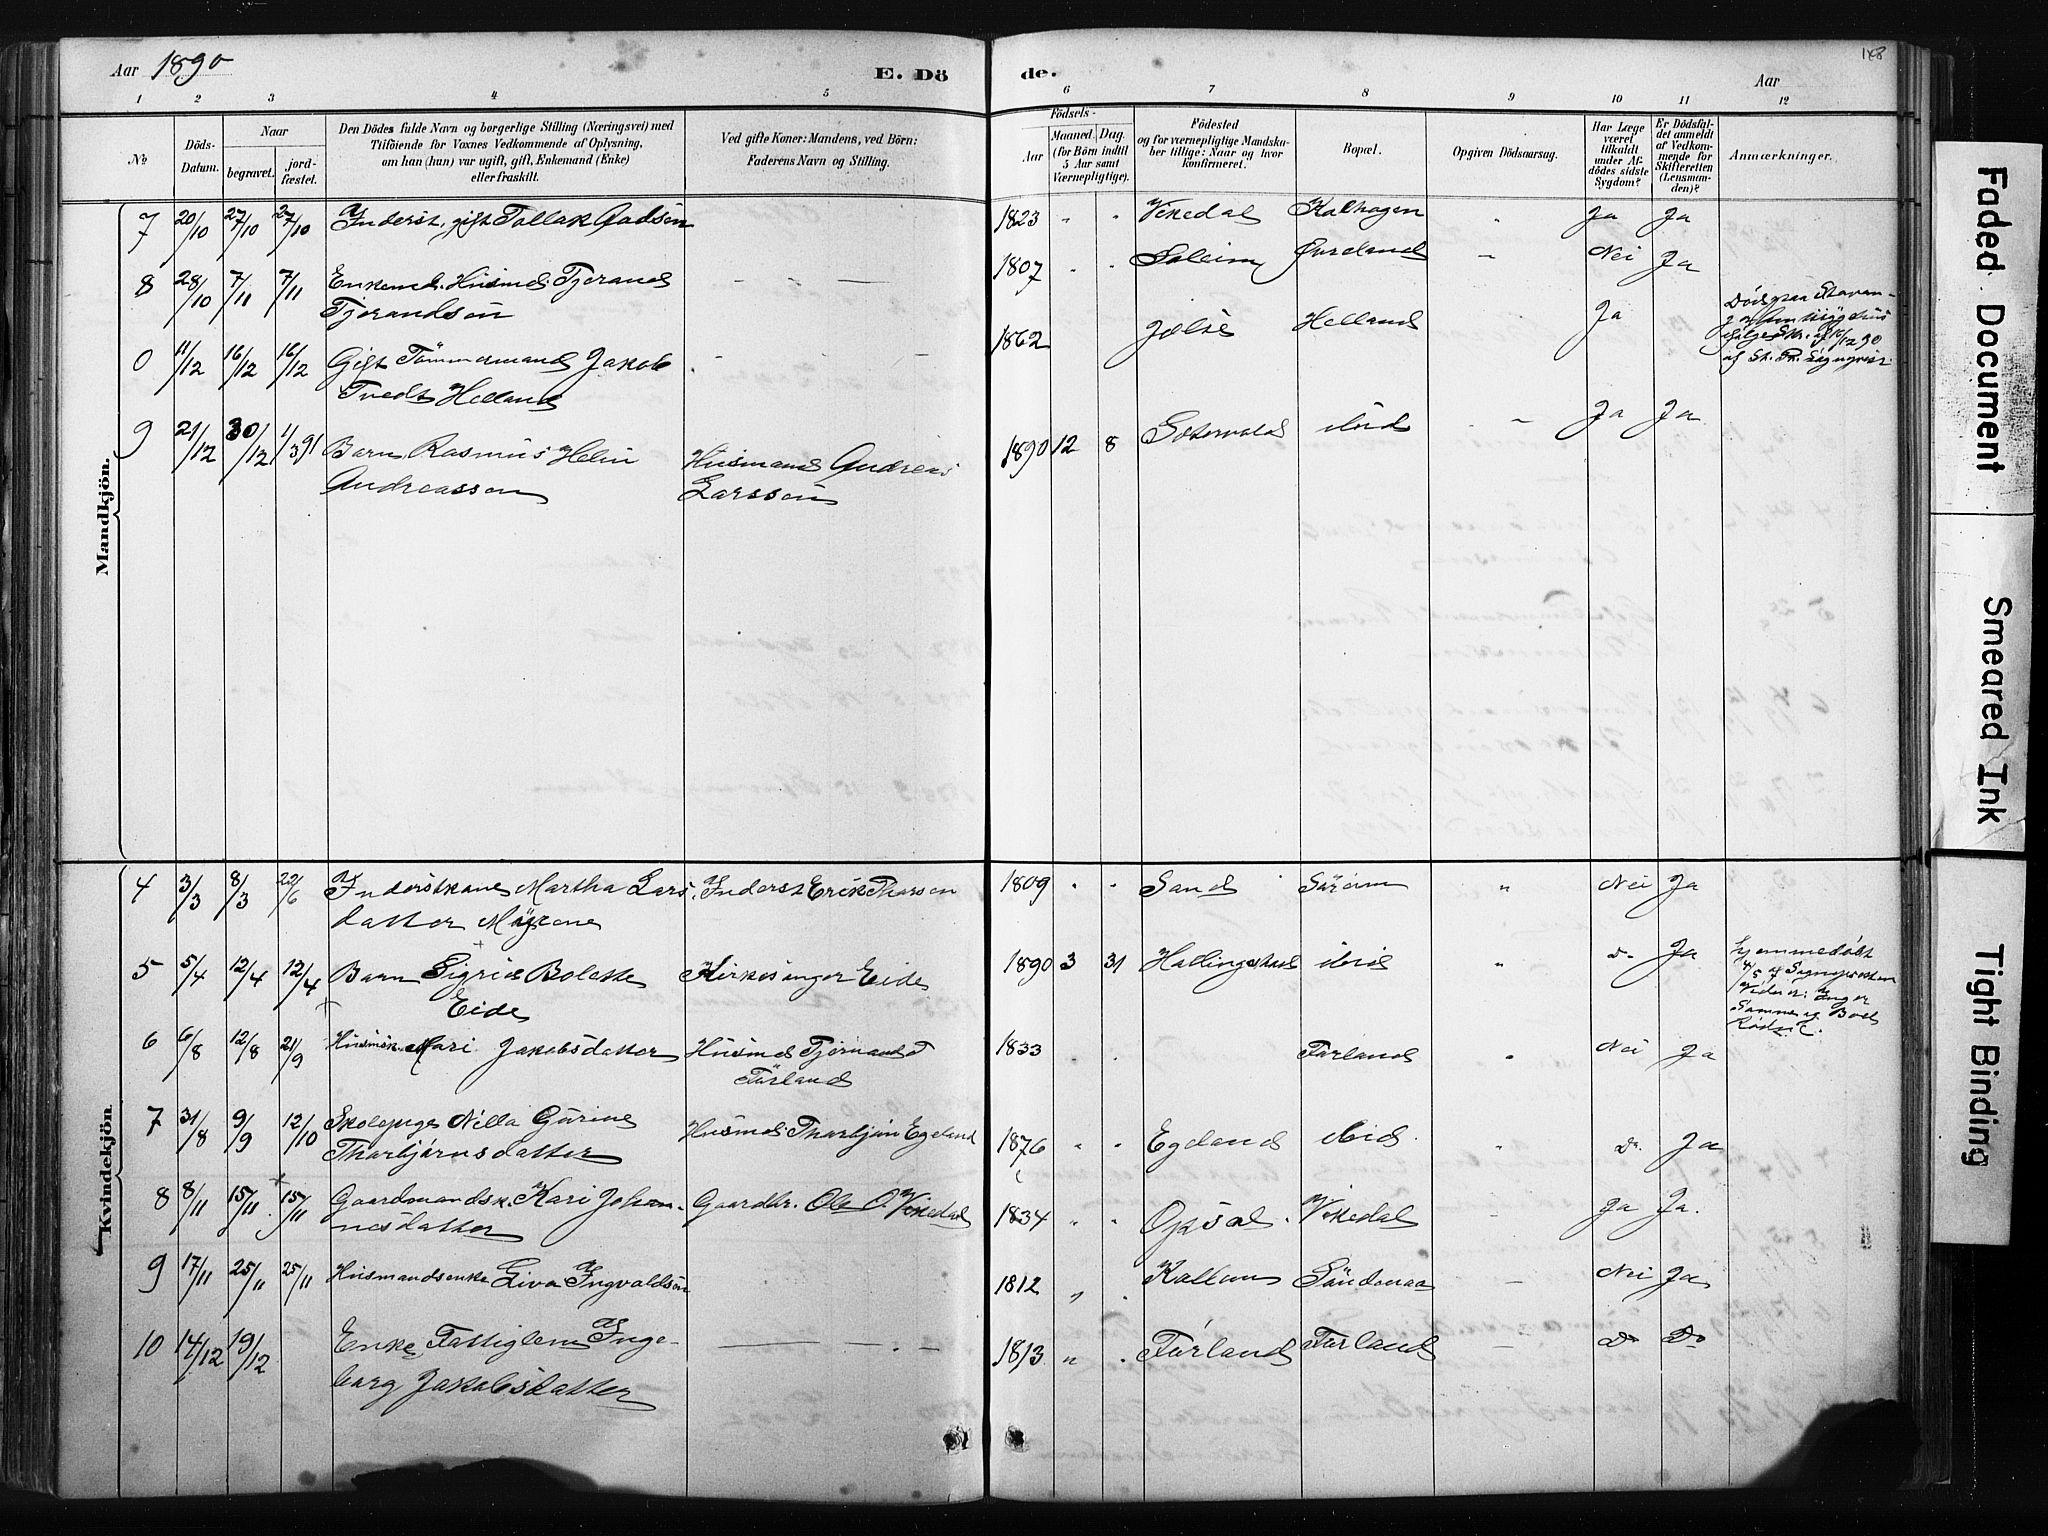 Aar 1890
E. Dö
de.
148
Aar
1 2 3 4 5 6 7 8 9 10 11 12
No
Döds-
Datum.
Naar
begravet.
jord-
fæstet.
Den Dödes fulde Navn og borgerlige Stilling (Næringsvei) med
Tilföiende for Voxnes Vedkommende af Oplysning,
om han (hun) var ugift, gift, Enkemand (Enke)
eller fraskilt.
Ved gifte Koner: Mandens, ved Börn:
Faderens Navn og Stilling.
Födsels-
Aar
Maaned. Dag.
(for Börn indtil
5 Aar samt
Værnepligtige).
Födested
og for værnepligtige Mandska-
ber tillige: Naar og hvor
konfirmeret.
Bopæl.
Opgiven Dödsaarsag.
Har Læge
været
tilkaldt
under Af-
dödes sidste
Sygdom?
Er Dödsfal-
det anmeldt
af Vedkom-
mende for
Skifteretten
(Lensman-
den)?
Anmærkninger.
Mandkjön.
7 20/10 27/10 27/10 Inderst, gift Tollak Aadsen 1823 " " Vikedal Kalhagen " Ja Ja
8 28/10 7/11 7/11 Enkemd. Husmd. Tjerand
Tjerandsen
1807 " " Øvreland " Nei Ja
0 11/12 16/12 16/12 Gift Tømmermand Jakob
Tvedt Helland
1862 Jelse Helland Ja
Död paa Stavan-
9 21/12 30/12 1/3 91 Barn Rasmus Helin
Andreassen
Husmand Andreas
Larssen
1890 12 8 ibid " Ja Ja
Kvindekjön.
4 3/3 8/3 22/6 Inderstkone Martha Lars-
datter
Inderst Erik Thorsen
1809 " " Sand Søreim " Nei Ja
5 5/4 12/4 12/4 Barn Sigrid Bolette
Eide
Kirkesanger Eide
1890 3 31 Hallingstad ibid " Do Ja
hjemmedøbt
6 6/8 12/8 21/9 Husmk. Mari Jakobsdatter
Husmd Tjernand T
Førland
1833 Førland " Nei Ja
7 31/8 9/9 12/10 Skolepige Nilla Gurine
Thorbjørnsdatter
Husmd. Thorbjørn Egeland
1876 " " Egeland ibid. " Do. Ja
8 8/11 15/11 15/11 Gaardmandsk. Kari Johan-
nesdatter
Gaardbr. Ole O. Vikedal
1834 " " Opsal Vikedal Ja Ja.
9 17/11 25/11 25/11 Husmandsenke Liva Ingvaldsen
1812 " Søndenaa Nei Ja
10 14/12 19/12 Enke Fattiglem Inge-
borg Jakobsdatter
1813 " Førland Førland Do Do
Faded Document
Smeared Ink
Tight Binding